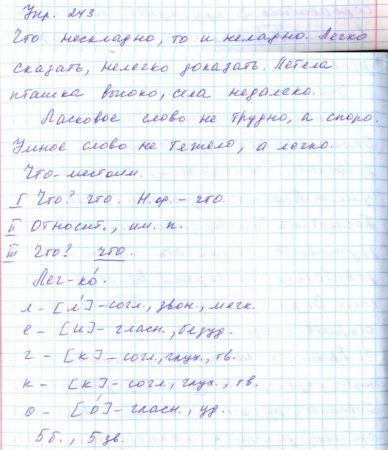 Упр. 243
Что нескладно, то и неладно. Легко
сказать, нелегко доказать. Летела
пташка высоко, села недалеко.
Ласковое слово не трудно, а споро.
Умное слово не тяжело, а легко.
Что - местоим.
I Что? Что. Н.ф. – что.
II Относит., им. п.
III Что? что.
Лег-ко́.
л – [л'] – согл., звон., мягк.
е – [и] – гласн., безуд.
г – [к] – согл., глух., тв.
к – [к] – согл., глух., тв.
о – [о́] – гласн., уд.
5 б., 5 зв.